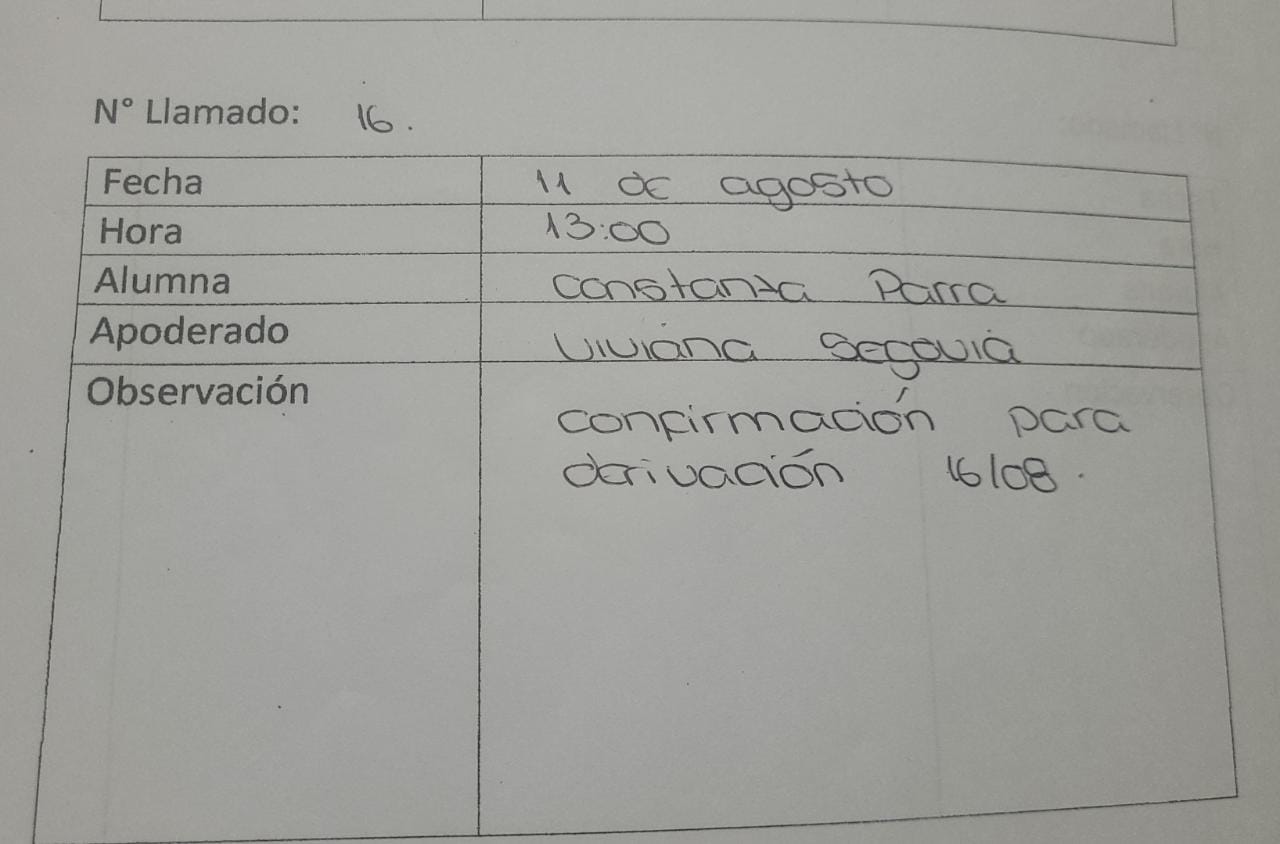 N° Llamado: 16.
Fecha 11 de agosto
Hora 13:00
Alumna Constanza Parra
Apoderado Viviana Segovia
Observación confirmación para
derivación 16/08.